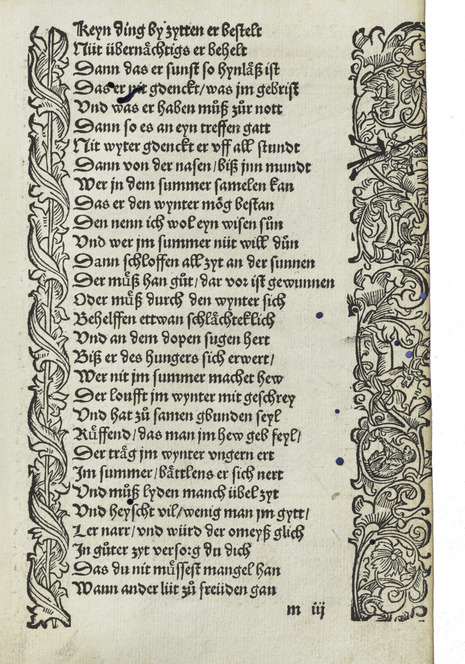 Keyn ding by zytten er bestelt
Nüt übernåchtigs er behelt
Dann das er sunst so hynläß ist
Das er nit gdenckt/was jm gebrist
Vnd was er haben můß zůr nott
Dann so es an eyn treffen gatt
Nit wyter gdenckt er vff all stundt
Dann von der nasen/biß jnn mundt
Wer jn dem summer samelen kan
Das er den wynter mög bestan
Den nenn ich wol eyn wisen sůn
Vnd wer jm summer nüt will důn
Dann schloffen all zyt an der sunnen
Der můß han gůt/dar vor ist gewunnen
Oder můß durch den wynter sich
Behelffen ettwan schlåchteklich
Vnd an dem dopen sugen hert
Biß er des hungers sich erwert/
Wer nit jm summer machet hew
Der loufft jm wynter mit geschrey
Vnd hat zů samen gbunden seyl
Růffend/das man jm hew geb feyl/
Der tråg jm wynter vngern ert
Jm summer/båttlens er sich nert
Vnd můß lyden manch übel zyt
Vnd heyscht vil/wenig man jm gytt/
Ler narr/vnd würd der omeyß glich
Jn gůter zyt versorg du dich
Das du nit můssest mangel han
Wann ander lüt zů freüden gan
m iij